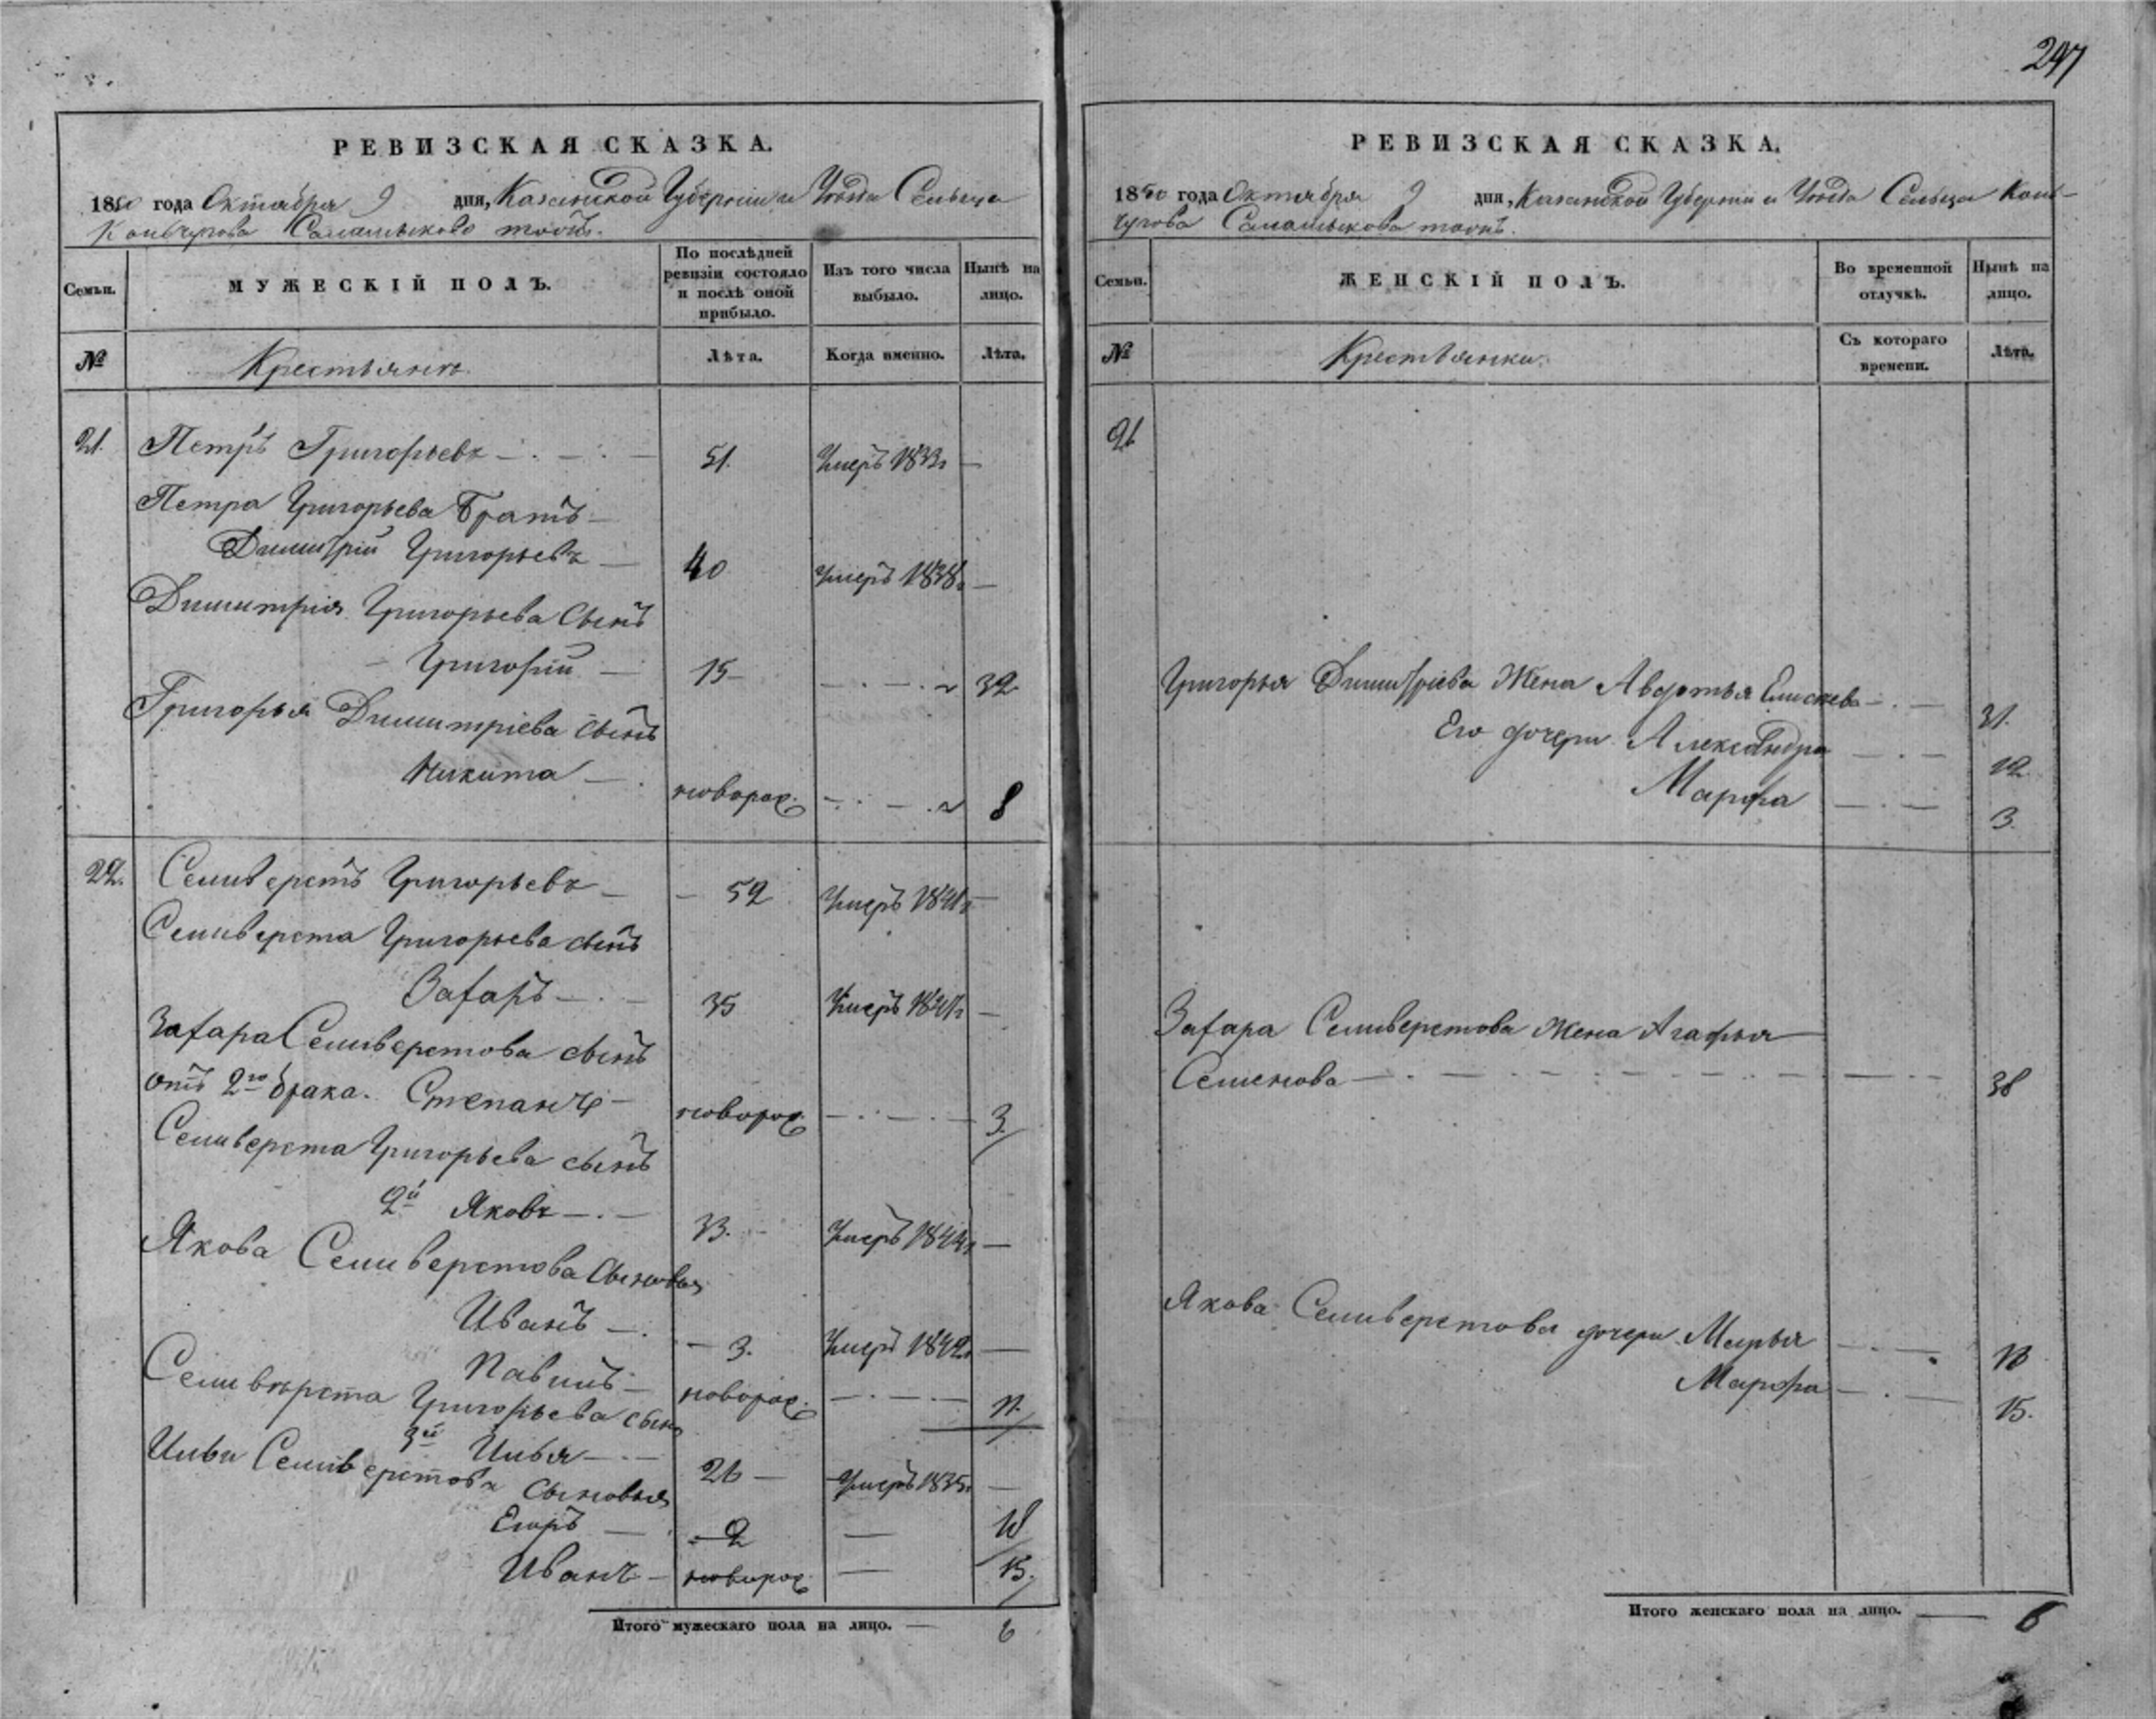 247
РЕВИЗСКАЯ СКАЗКА.
1850 года Октября 9 дня, Казанской Губерніи и Уѣзда Сельца
РЕВИЗСКАЯ СКАЗКА.
1850 года Октября 9 дня, Казанской Губерніи и Уѣзда Сельца
Семьи.
МУЖЕСКІЙ ПОЛЪ.
По послѣдней ревизіи состояло и послѣ оной прибыло.
Изъ того числа выбыло.
Нынѣ на лицо.
№
Крестьянъ
Лѣта.
Когда именно.
Лѣта.
21. Петръ Григорьевъ 51. Умеръ 1833г
Петра Григорьева Братъ
Димитрій Григорьевъ 40 Умеръ 1838г
Димитрія Григорьева Сынъ
Григорій 15 32
Григорья Димитріева Сынъ
Никита новорож. 8
22. Селиверстъ Григорьевъ 52 Умеръ 1841г
Селиверста Григорьева сынъ
Захаръ 35 Умеръ
Захара Селиверстова сынъ
отъ 2го брака. Степанъ новорож. 3.
Селиверста Григорьева сынъ
2й Яковъ 33. Умеръ 1844г
Якова Селиверстова Сыновья
Иванъ 3. Умеръ 1842г
новорож. 17.
Селиверста Григорьева сынъ
3й Илья 26 Умеръ 1835г
Ильи Селиверстова Сыновья
Егоръ 2 18
Иванъ новорож. 15.
Итого мужескаго пола на лицо. 6
Семьи.
ЖЕНСКІЙ ПОЛЪ.
Во временной отлучкѣ.
Нынѣ на лицо.
№
Крестьянки.
Съ котораго времени.
Лѣта.
21
Григорья Димитріева Жена Авдотья Елисеева 31.
Его дочери Александра 12
Марфа 3.
Захара Селиверстова Жена Агафья
Семенова 38
Якова Селиверстова дочери Марья 18
Марфа 15.
Итого женскаго пола на лицо. 6